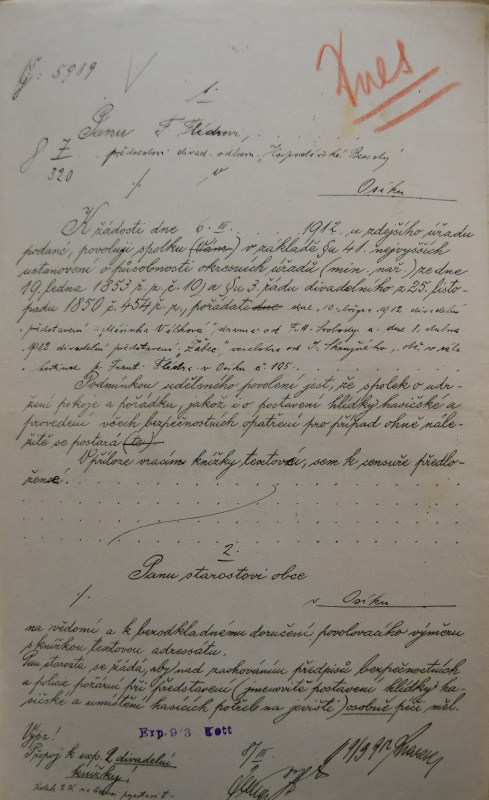 Čj: 5989
Dnes
1.
Panu F. Flídrovi,
předsedovi divad. odboru „Hospodářské Besedy“
8 7/I 320
v
Osíku
K žádosti dne 6. III. 1912 u zdejšího úřadu
podané, povoluji spolku (Vám) v základě §u 41. nejvyšších
ustanovení o působnosti okresních úřadů (min. nař.) ze dne
19. ledna 1853 ř. z. č. 10) a §u 3. řádu divadelního z 25. listo-
padu 1850 č. 454 ř. z., pořádati dne dne 10. března 1912 divadelní
představení „Mařinka Válkova“ drama od F. A. Svobody a dne 8. dubna
1912 divadelní představení „Žabec“ veselohra od J. Skružného, obě v sále
hostince p. Frant. Flídra v Osíku č. 195.
Podmínkou uděleného povolení jest, že spolek o udr-
žení pokoje a pořádku, jakož i o postavení hlídky hasičské a
provedení všech bezpečnostních opatření pro případ ohně nále-
žitě se postará (te).
V příloze vracím knížky textové, sem k censuře předlo-
žené.
2.
Panu starostovi obce
v Osíku
na vědomí a k bezodkladnému doručení povolovacího výměru
s knížkou textovou adressátu.
Pan starosta se žádá, aby nad zachováním předpisů bezpečnostních
a policie požární při představení (jmenovitě postavení hlídky ha-
sičské a umístění hasicích potřeb na jevišti) osobně péči měl.
Výpr!
Připoj k exp. 1 divadelní
knížky.
Exp. 9/3 Kott
8/III